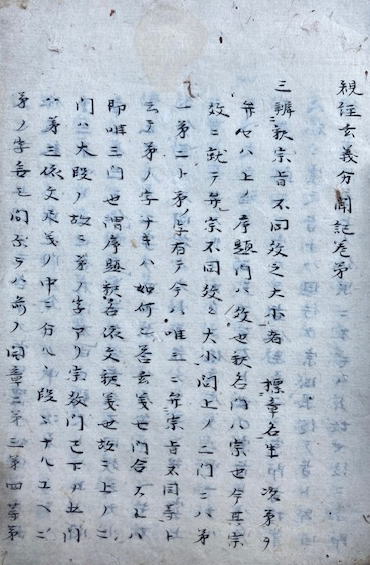 観経玄義分聞記巻第
三辨釈宗旨不同教之大小者 標章名生 次第ヲ
弁セハ上ノ序題門ハ教也釈名門ハ宗也今其宗
教ニ就テ弁宗不同教之大小問上ノ二門ニハ第
一第二ト第ノ字有テ今ハ唯三ニ弁宗旨不同等ト
云テ第ノ字ナキハ如何答玄義七門合スレハ
即唯三門也謂序題釈名依文釈義也故ニ上ノ二
門ハ大段ノ故ニ第ノ字アリ宗教門已下ノ五門
ハ第三依文釈義ノ中ニ分ル段ナルユヘニ
第ノ字無シ問若ラハ前ノ同章三第三第四等第